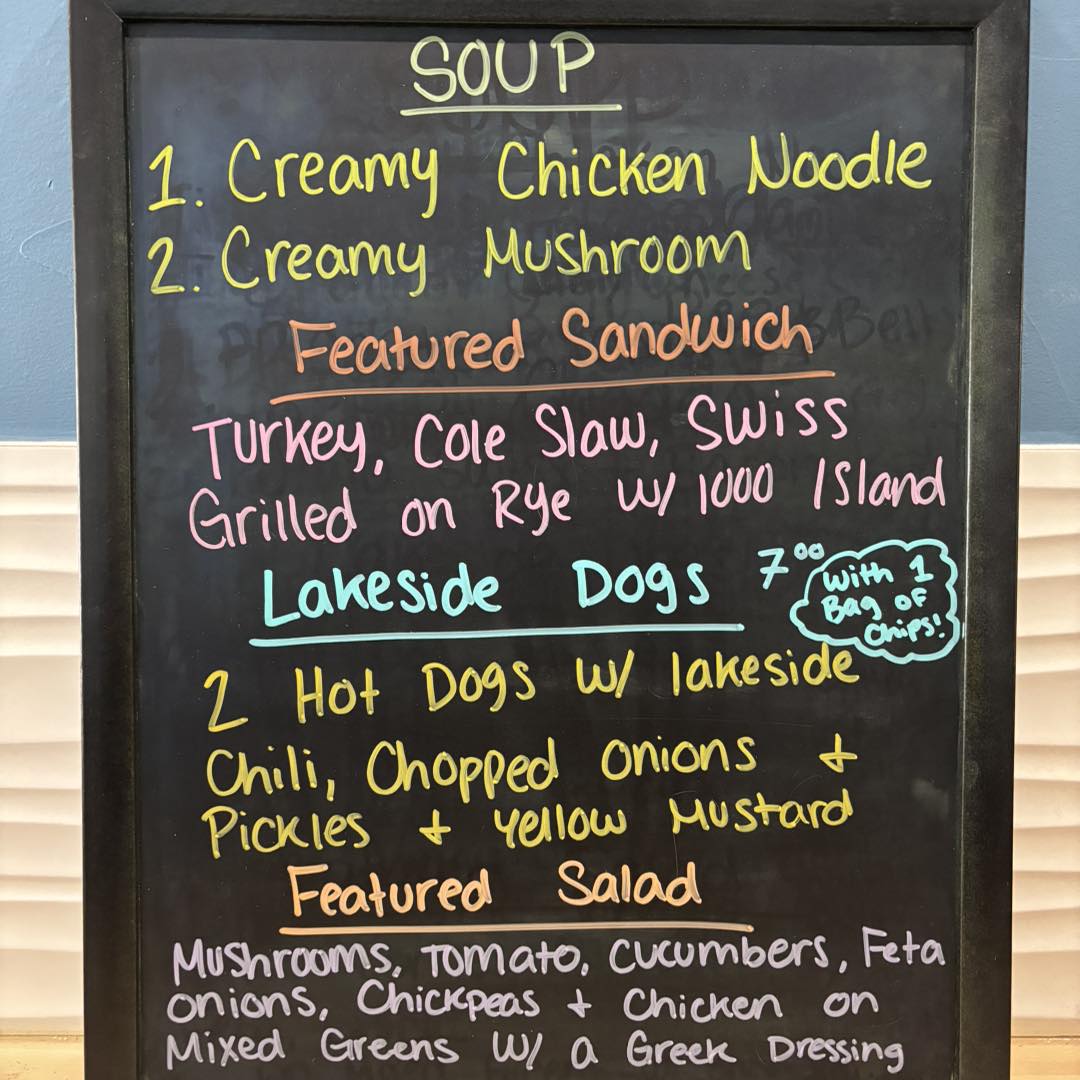 SOUP
1. Creamy Chicken Noodle
2. Creamy Mushroom
Featured Sandwich
Turkey, Cole Slaw, Swiss
Grilled on Rye w/ 1000 Island
Lakeside Dogs 7.00
with 1
Bag of
Chips!
2 Hot Dogs w/ lakeside
Chili, Chopped onions +
Pickles + Yellow Mustard
Featured Salad
Mushrooms, Tomato, Cucumbers, Feta
onions, Chickpeas + Chicken on
Mixed Greens w/ a Greek Dressing